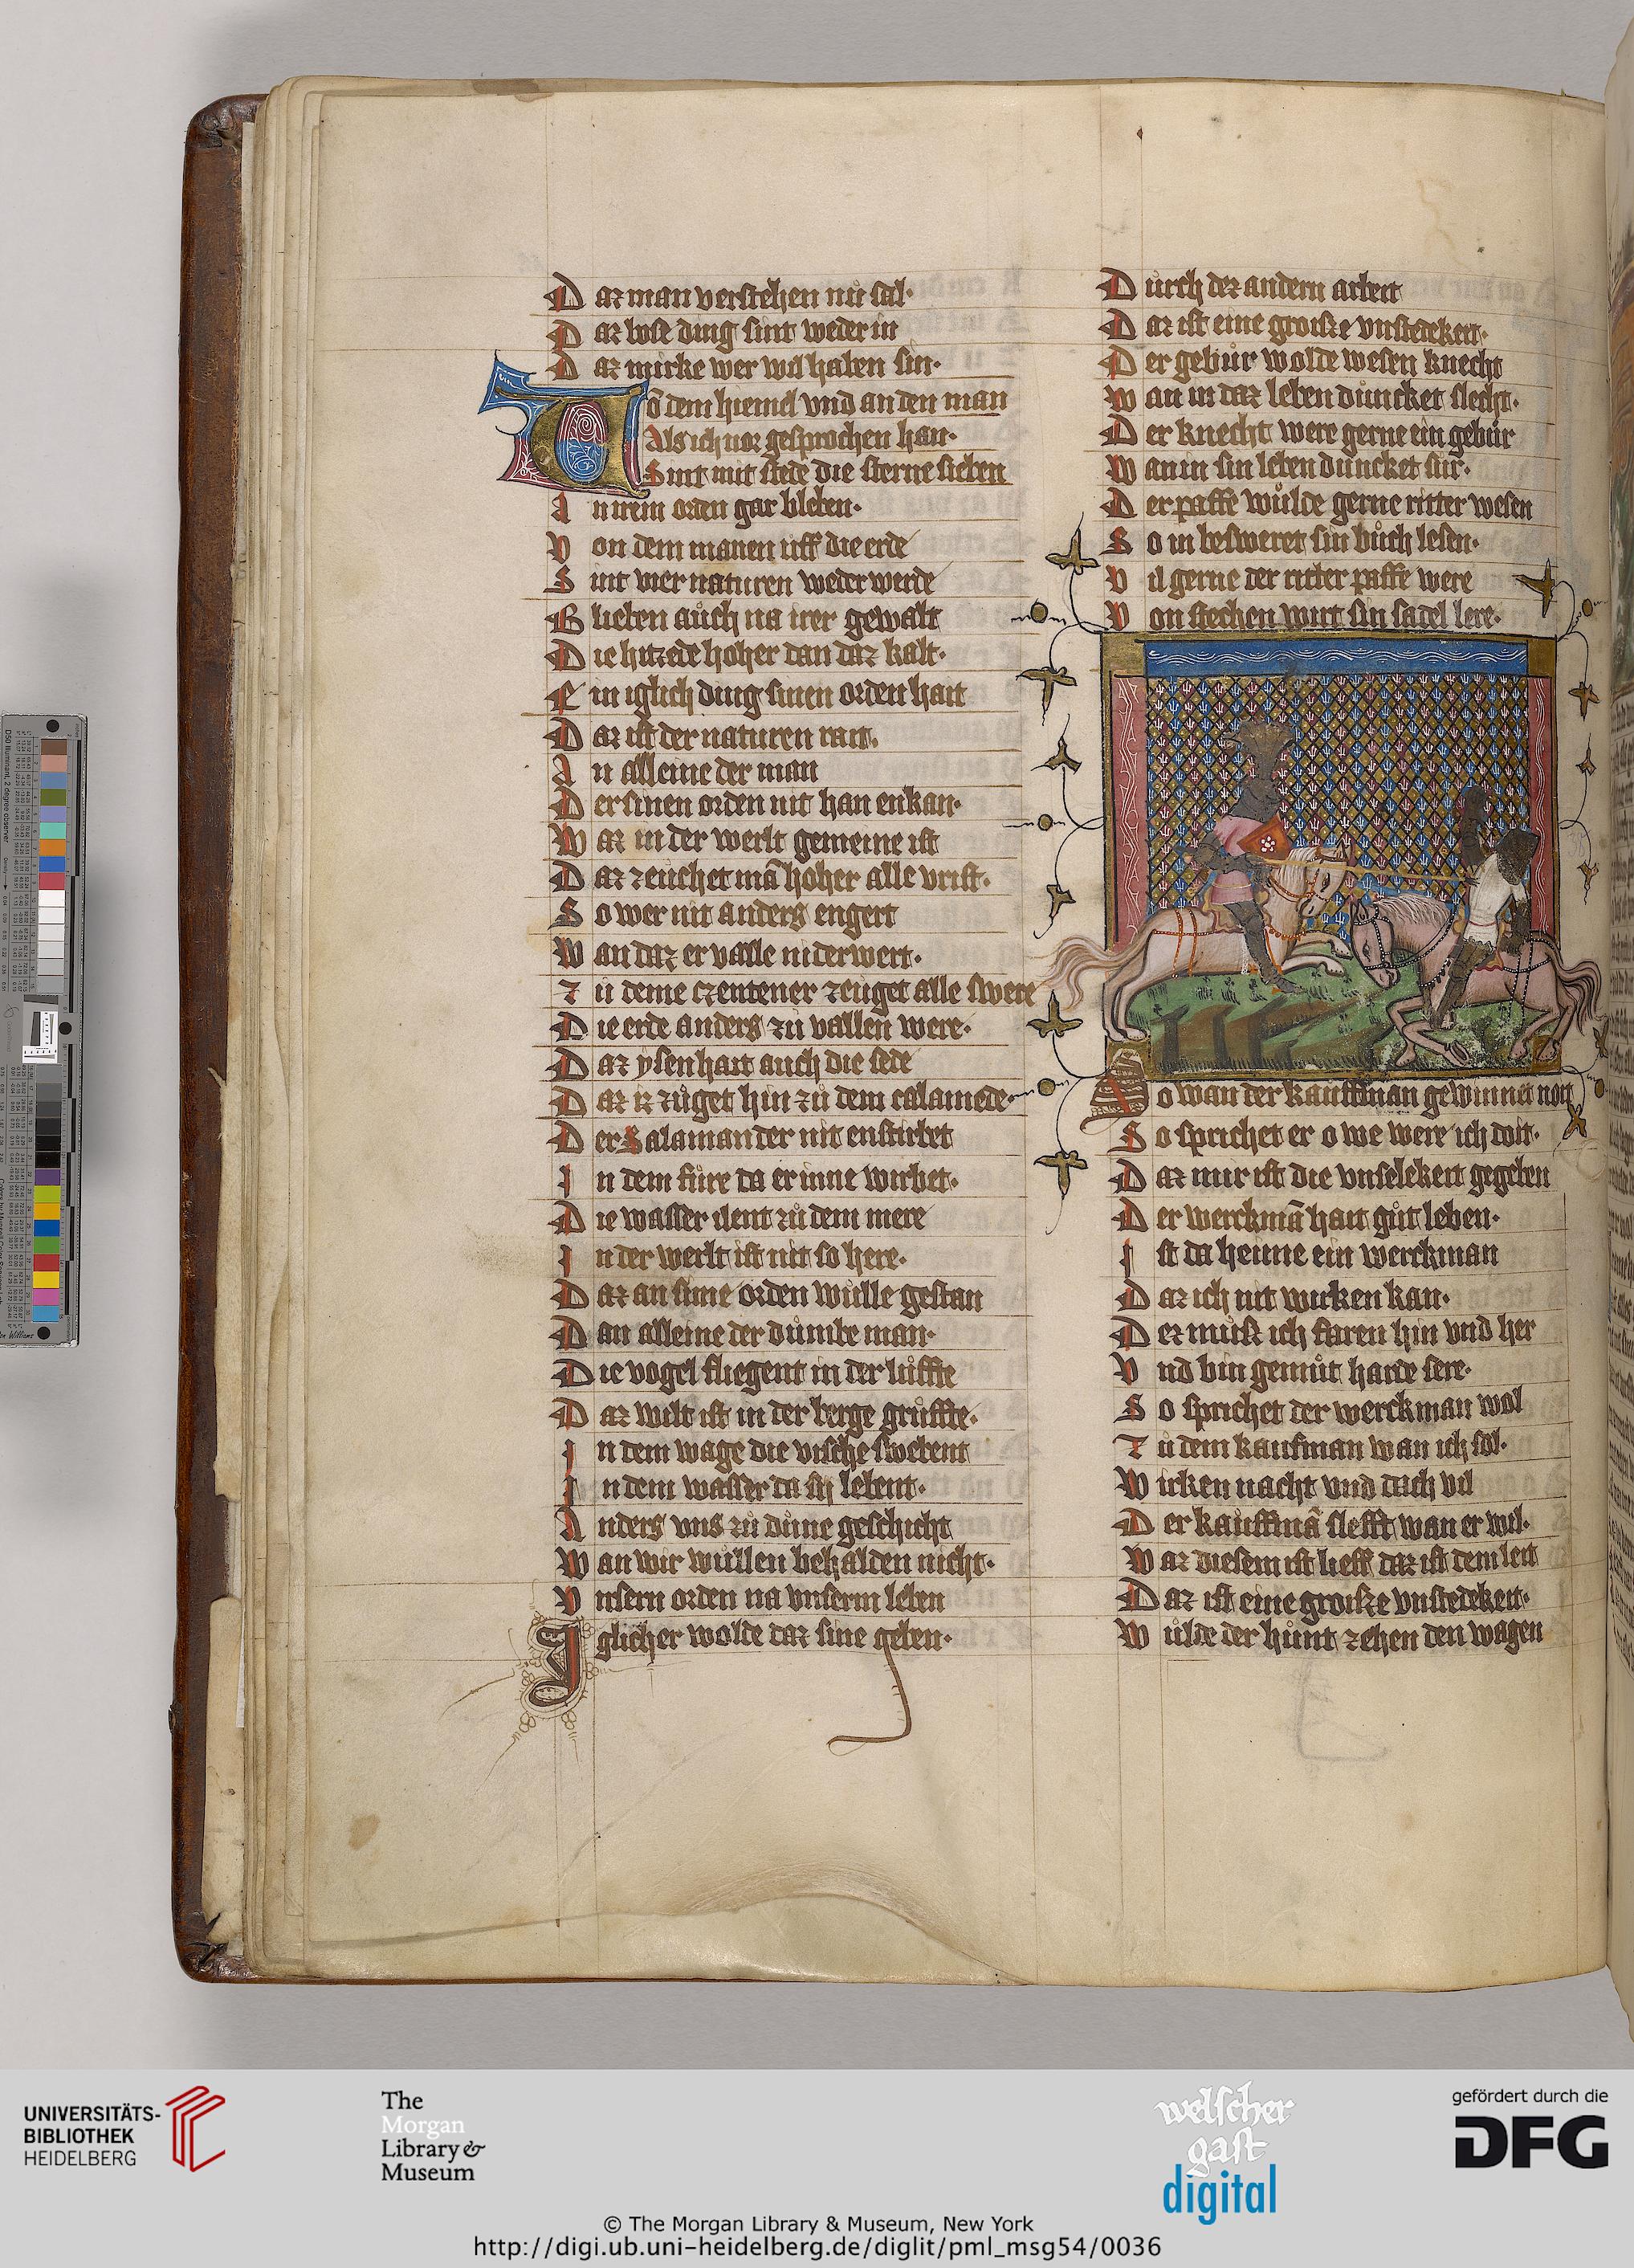 Daz man verstehen nů sal·
Daz bose ding sint weder in
Daz mirke wer wil haben sin·
Vō dem hiemel vnd an den man
Als ich uor gesprochen han·
Sint mit stede die sterne sieben
An irem orden gar bleben·
Von dem manen uff die erde
Sint vier naturen weder werde
Blieben auch na irer gewalt
Die hitzede hoher dan daz kalt·
Ein iglich ding sinen orden hait
Daz ist der naturen rait.
An alleine der man
Der sinen orden nit han enkan·
Waz in der werlt gemeine ist
Daz zeuchet mā hoher alle vrist·
So wer nit anders engert
Wan daz er valle niderwert·
Zu deme czentener zeuget alle swere
Die erde anders zů vallen were·
Daz ysen hait auch die sede
Daz iz zůget hin zů dem calamede·
Der Salamander nit enstirbet
In dem fůre da er inne wirbet·
Die wasser ilent zů dem mere
In der werlt ist nit so here·
Daz an sime orden wůlle gestan
Dan alleine der důmbe man·
Die vogel fliegent in der lůffte
Daz wilt ist in der berge grůffte·
In dem wage die vische swebent
In dem wasser da sij lebent·
Anders vns zů důme geschicht
Wan wir wůllen behalden nicht·
Vnsern orden na vnserm leben
Iglicher wolde daz sine geben·
Důrch dez andern arbeit
Daz ist eine groisze vnstedekeit·
Der gebůr wolde wesen knecht
Wan in daz leben důncket slecht·
Der knecht were gerne ein gebůr
Wan in sin leben duncket sůr·
Der paffe wůlde gerne ritter wesen
So in besweret sin bůch lesen·
Vil gerne der ritter paffe were
Von stechen wirt sin sadel lere·
So wan der kauffman gewinnet noit
So sprichet er owe were ich doit·
Daz mir ist die vnselekeit gegeben
Der werckmā hait gůt leben·
Ist da heime ein werckman
Daz ich nit wirken kan·
Dez můsz ich faren hin vnd her
Vnd bin gemůt harte sere·
So sprichet der werckman wol
Zu dem kaufman wan ich sol·
Wirken nacht vnd dach vil
Der kauffmā slefft wan er wil·
Waz diesem ist lieff daz ist dem leit
Daz ist eine groisze vnstedekeit·
Wůlde der hůnt zehen den wagen
UNIVERSITÄTS-
BIBLIOTHEK
HEIDELBERG
The
Morgan
Library &
Museum
welscher
gast
digital
gefördert durch die
DFG
© The Morgan Library & Museum, New York
http://digi.ub.uni-heidelberg.de/diglit/pml_msg54/0036